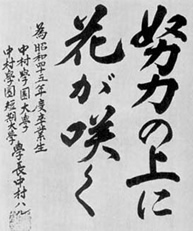 努力の上に
花が咲く
為昭和四十五年度卒業生
中村學園大学
中村學園短期大学
學長中村ハル